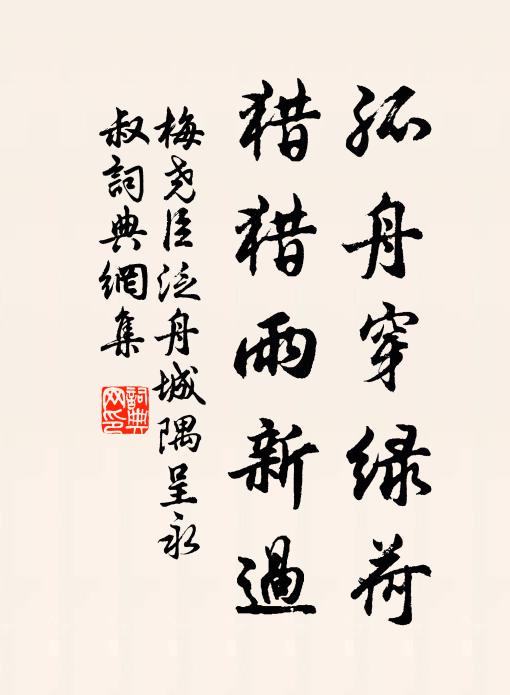 孤舟穿綠荷
猎猎雨新過
梅尧臣泛舟城隅呈永
叔詞典網集
詞典
网印